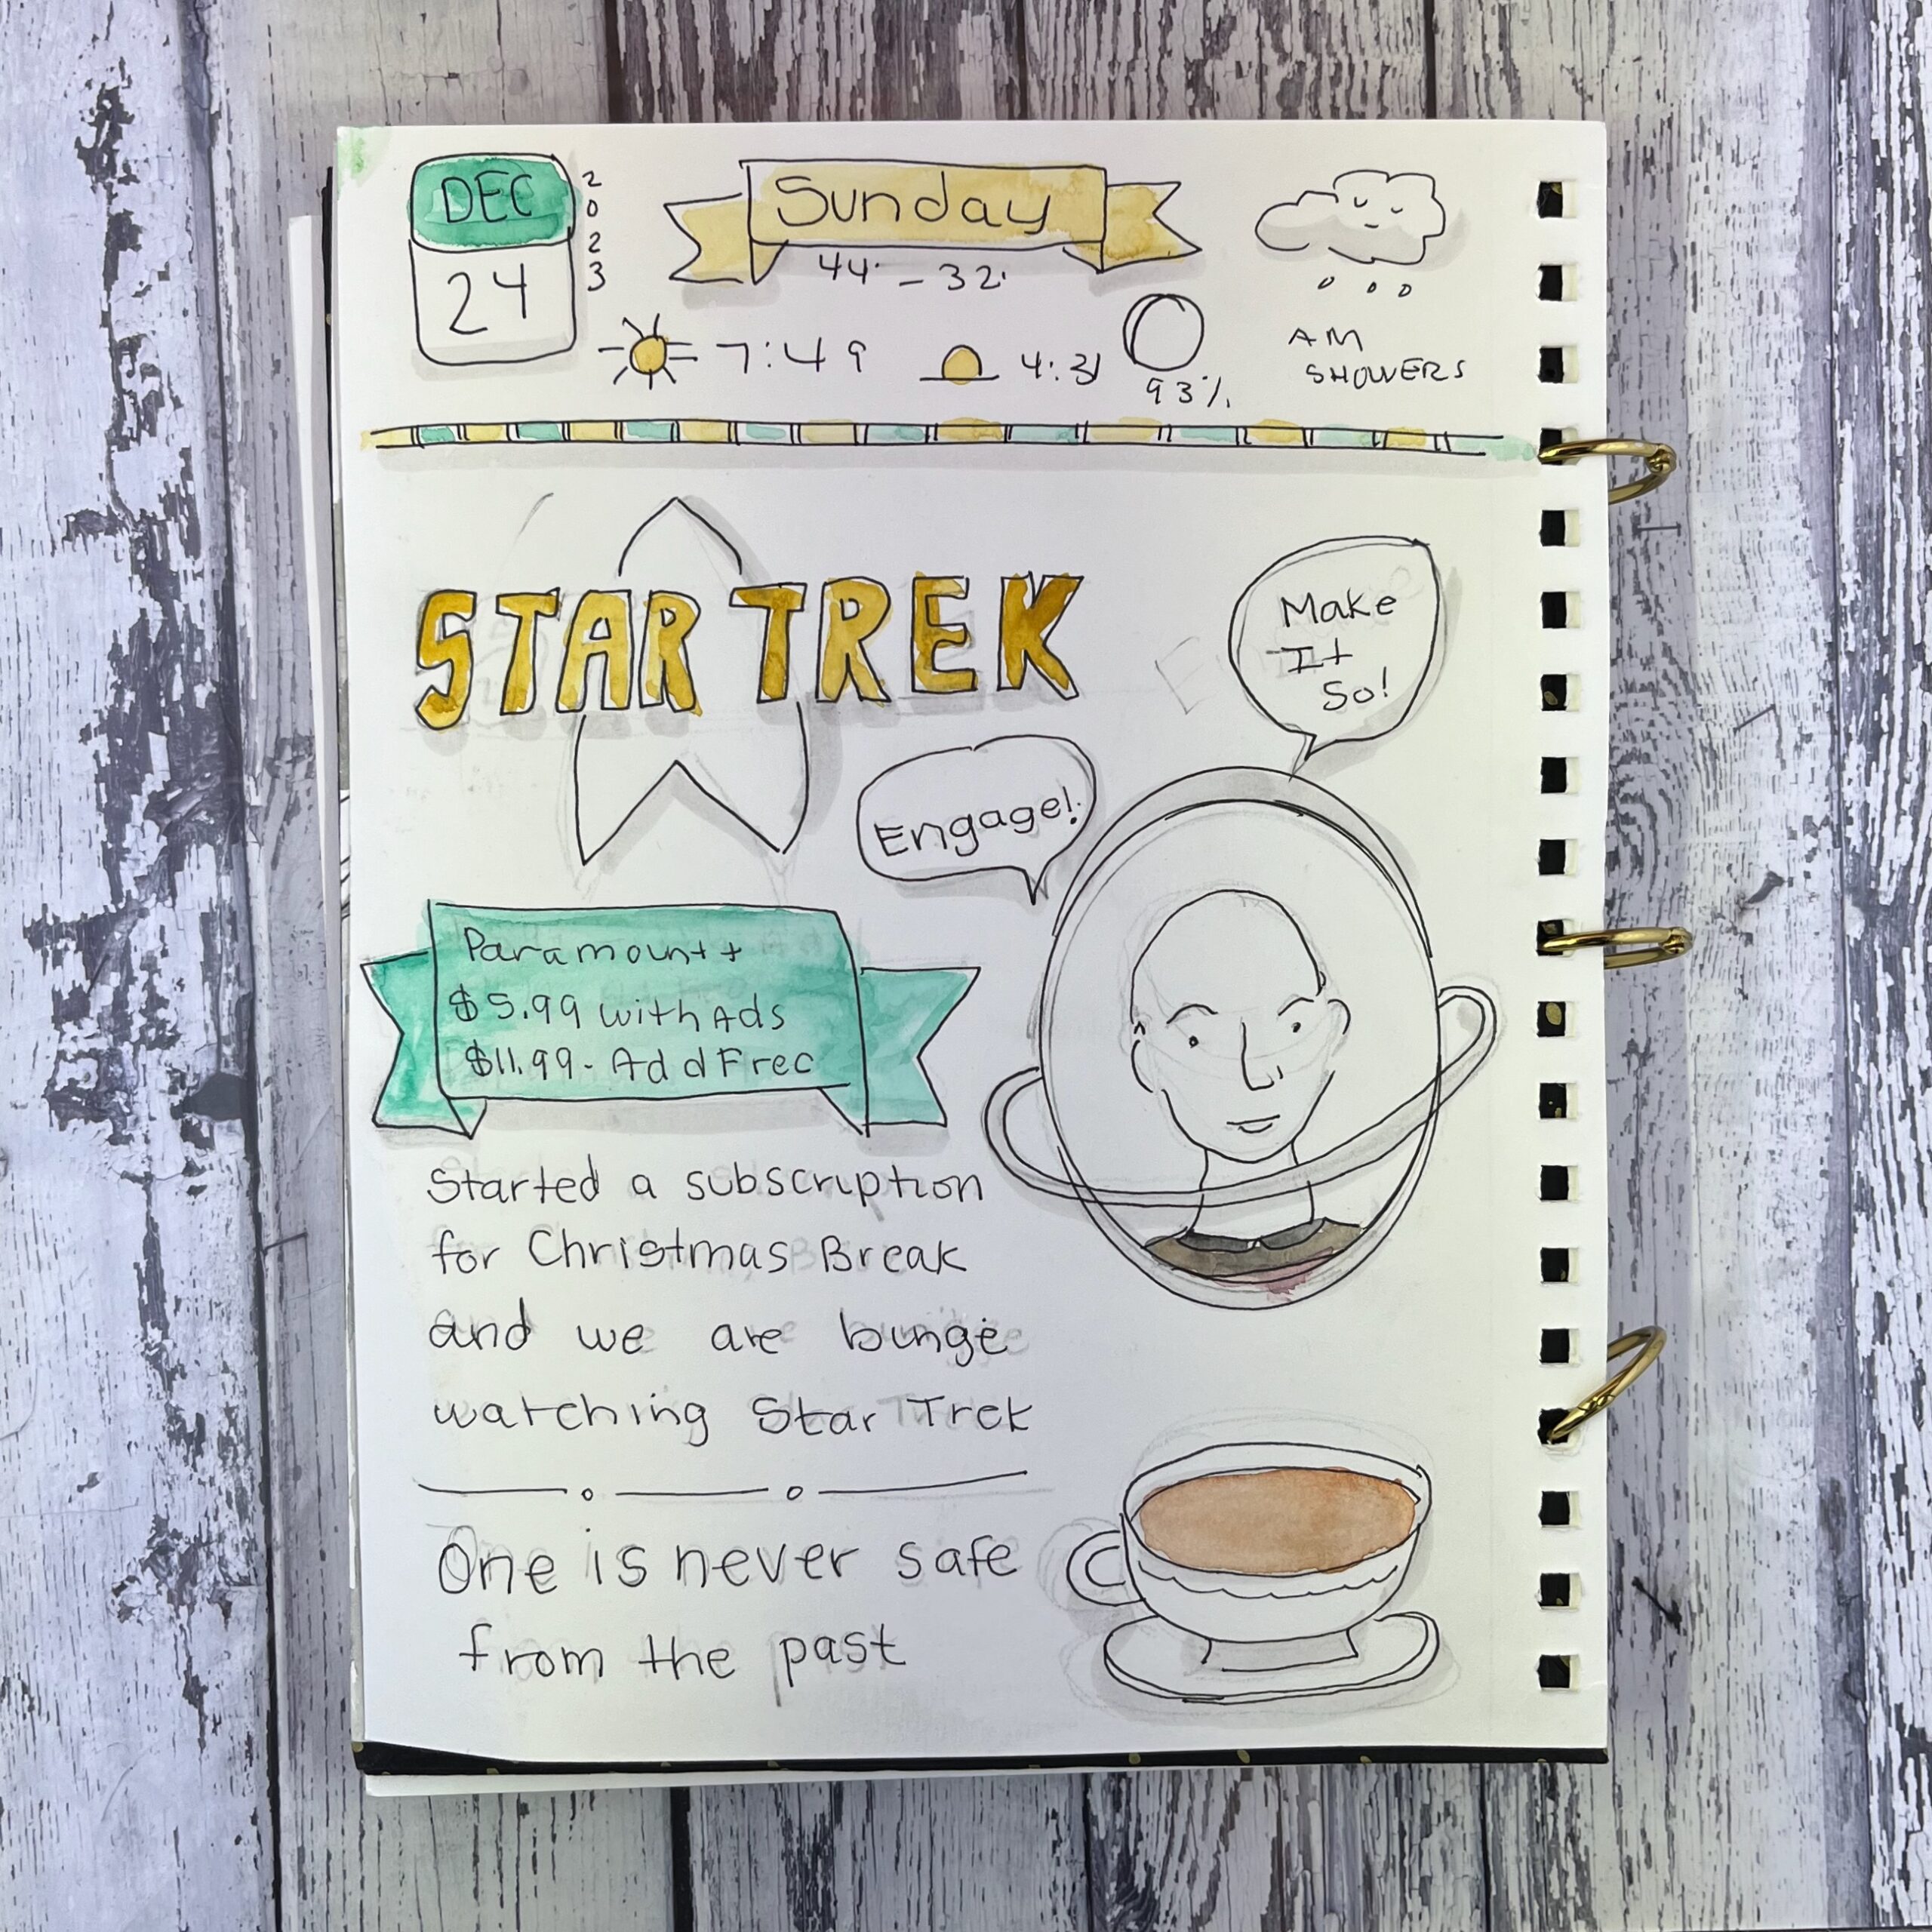 DEC
24
2023
Sunday
44° - 32°
7:49
4:31
93%
AM
SHOWERS
STAR TREK
Make
It
So!
Engage!
Paramount +
$5.99 with Ads
$11.99 - Add Free
Started a subscription
for Christmas Break
and we are binge
watching Star Trek
One is never safe
from the past